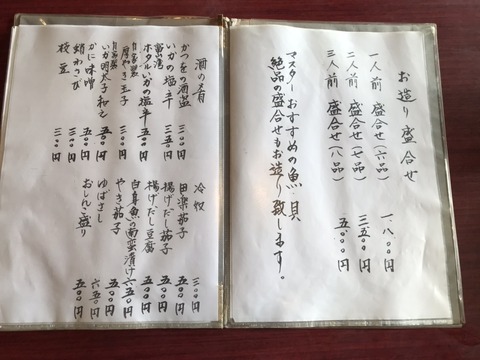 お造り盛合せ
一人前 盛合せ(六品) 一、八〇〇円
二人前 盛合せ(七品) 三、五〇〇円
三人前 盛合せ(八品) 五、〇〇〇円
マスターおすすめの魚貝
絶品の盛合せもお造り致します。
酒の肴
かつを酒盗 三〇〇円
いかの塩辛 三〇〇円
富山湾
ホタルいかの塩辛 五〇〇円
自家製
厚やき玉子 三〇〇円
自家製
いか明太子和え 五〇〇円
かに味噌 五〇〇円
蛸わさび 三〇〇円
枝豆 三〇〇円
冷奴 三〇〇円
田楽茄子 五〇〇円
揚げだし茄子 五〇〇円
揚げだし豆腐 五〇〇円
白身魚の南蛮漬け 六五〇円
やき茄子 五〇〇円
ゆばさし 六五〇円
おしんこ盛り 五〇〇円